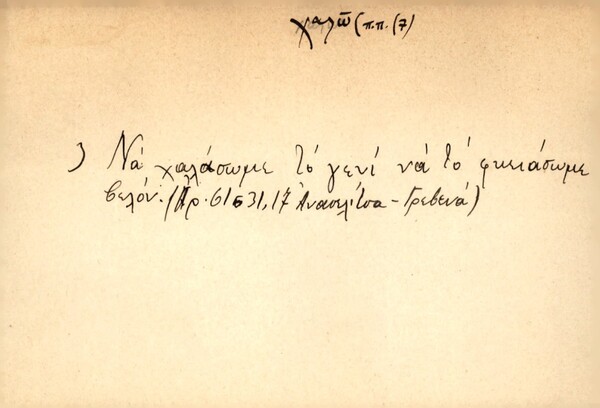 χαλῶ (π.π. (7)
) Νά χαλάσωμε τό γενί νά τό φκειάσωμε
βελόν. (Ἀρ. 61531, 17 Ἀνασελίτσα - Γρεβενά)